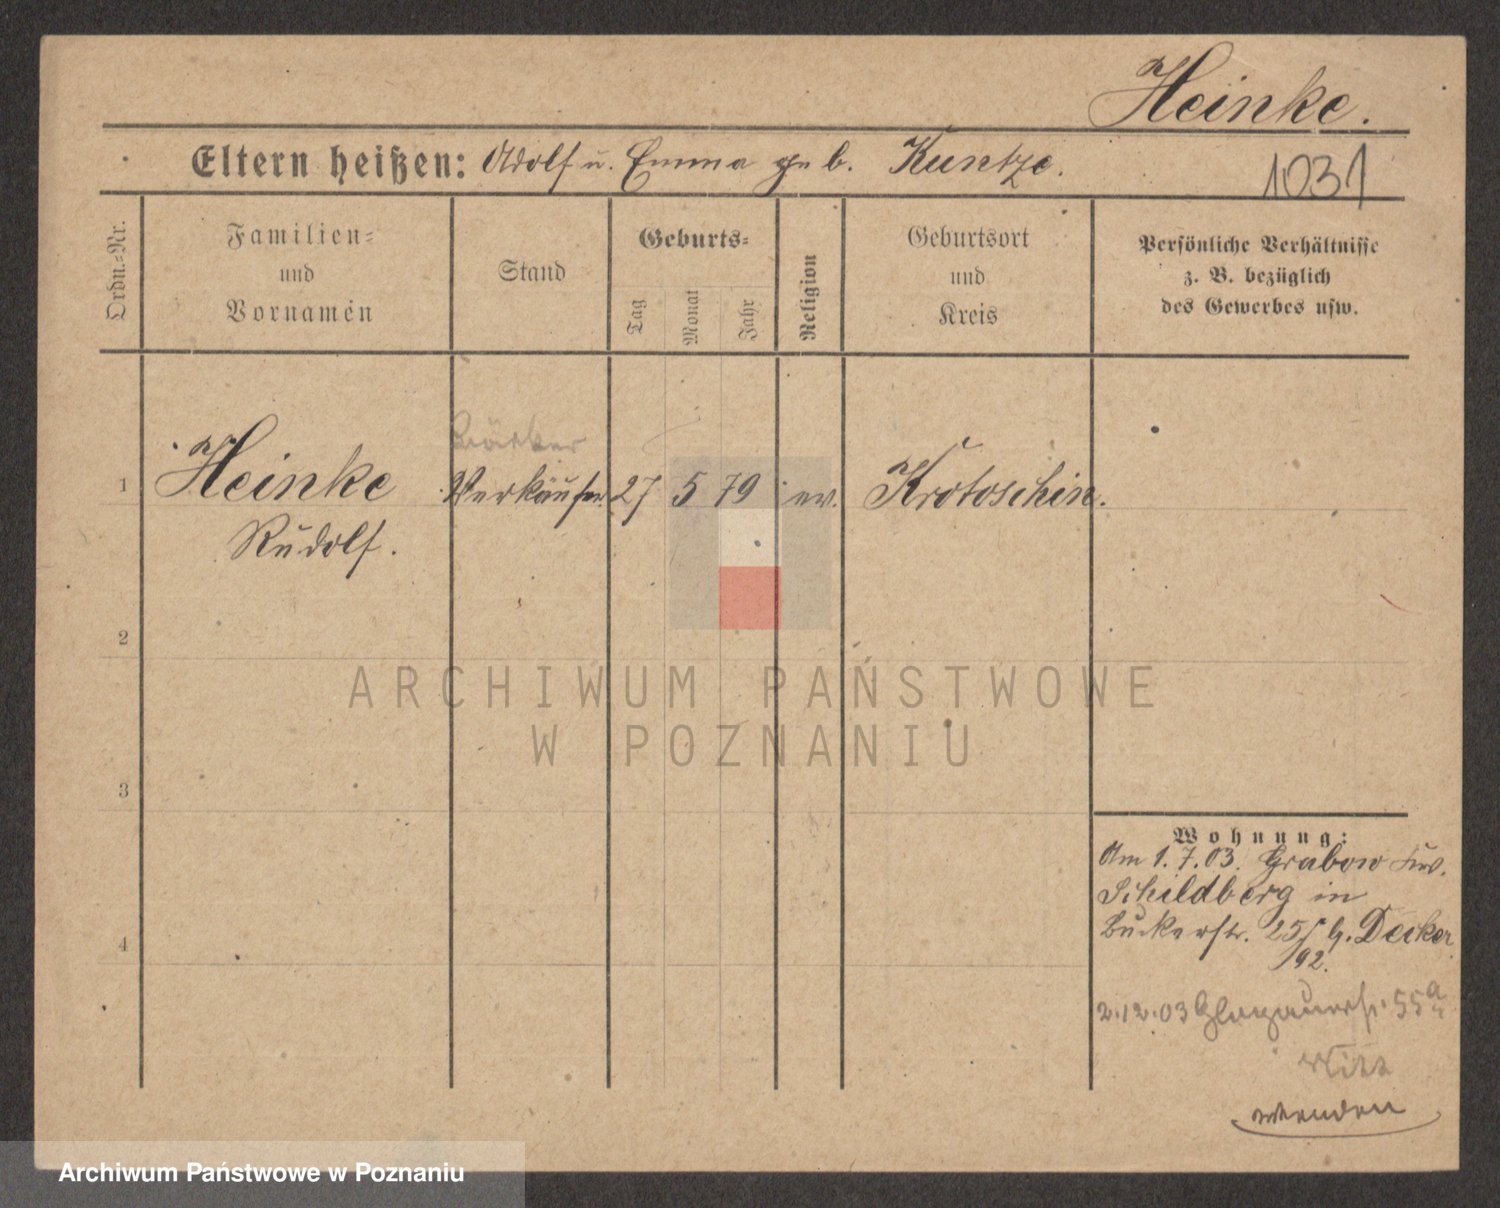 Heinke.
Eltern heißen: Adolf u. Emma geb. Kuntze.
1031
Ordn.-Nr.
Familien-
und
Vornamen
Stand
Geburts-
Tag
Monat
Jahr
Religion
Geburtsort
und
Kreis
Persönliche Verhältnisse
z. B. bezüglich
des Gewerbes usw.
1 Heinke Verkäufer 27 5 79 ev. Krotoschin.
Rudolf.
2
3
4
Wohnung:
Am 1.7.03. Grabow
Schildberg in
Bukerstr. 25/ b. Decker
/92.
2.12.03 Glogauerstr. 55a
Witt
wenden
ARCHIWUM PAŃSTWOWE
W POZNANIU
Archiwum Państwowe w Poznaniu